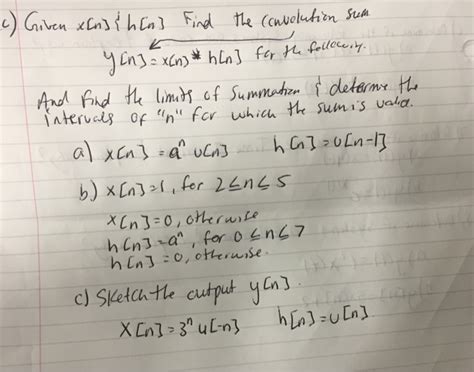 c) Given x[n] & h[n] Find the convolution sum
y[n] = x[n] * h[n] for the following.
And find the limits of summation & determine the
intervals of "n" for which the sum is valid.
a) x[n] = aⁿ u[n] h[n] = u[n-1]
b) x[n] = 1, for 2 ≤ n ≤ 5
x[n] = 0, otherwise
h[n] = aⁿ, for 0 ≤ n ≤ 7
h[n] = 0, otherwise.
c) Sketch the output y[n].
x[n] = 3ⁿ u[-n] h[n] = u[n]